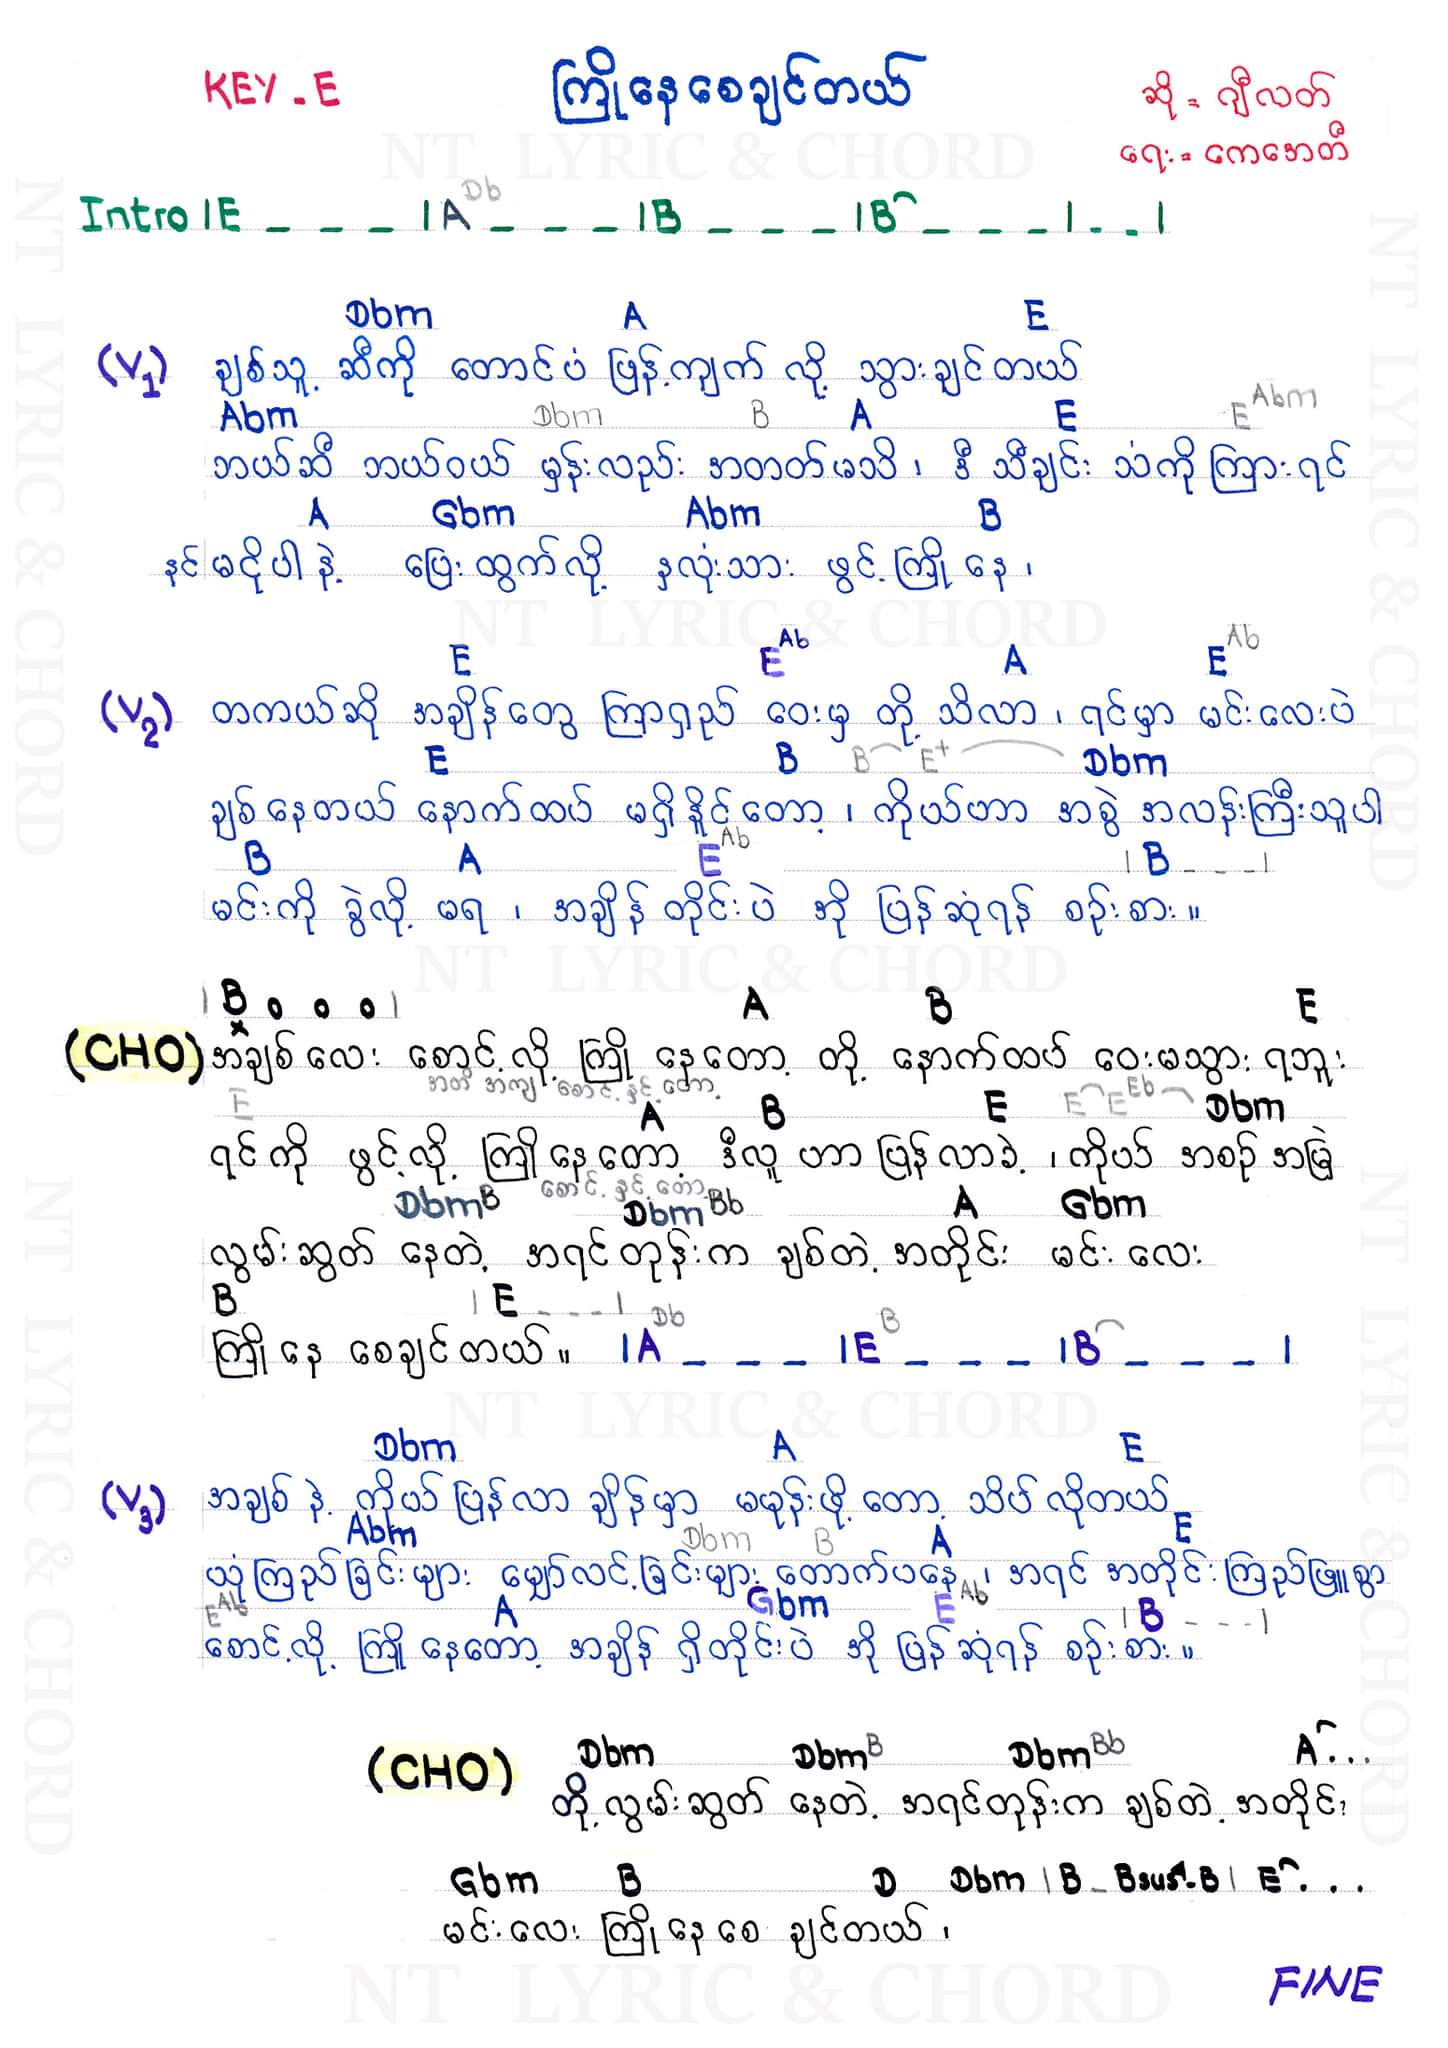 KEY - E
ကြိုနေစေချင်တယ်
ဆို = ဂျီလတ်
ရေး = ကေအေတီ
NT LYRIC & CHORD
Intro | E _ _ _ | A Db _ _ _ | B _ _ _ | B _ _ _ | _ _ |
Dbm A E
(V1) ချစ်သူ့ ဆီကို တောင်ပံ ဖြန့်ကျက် လို့ သွားချင်တယ်
Abm Dbm B A E E Abm
ဘယ်ဆီ ဘယ်ဝယ် မှန်းလည်း အတတ်မသိ ၊ ဒီ သီချင်း သံကို ကြားရင်
A Gbm Abm B
နင် မငိုပါ နဲ့ ပြေးထွက်လို့ နှလုံးသား ဖွင့် ကြို နေ ၊
NT LYRIC & CHORD
E E Ab A E Ab
(V2) တကယ်ဆို အချိန်တွေ ကြာရှည် ဝေးမှ တို့ သိလာ ၊ ရင်မှာ မင်းလေးပဲ
E B B E+ Dbm
ချစ်နေတယ် နောက်ထပ် မရှိနိူင်တော့ ၊ ကိုယ်ဟာ အစွဲ အလန်းကြီးသူပါ
B A E Ab | B _ _ _ |
မင်းကို ခွဲလို့ မရ ၊ အချိန် တိုင်းပဲ ဘို ပြန်ဆုံရန် စဉ်းစား ။
NT LYRIC & CHORD
| B o o o | A B E
(CHO) အချစ် လေး စောင့်လို့ ကြို နေတော့ တို့ နောက်ထပ် ဝေးမသွား ရဘူး
အတိ အကျ စောင့် နှင့် တော့
E A B E E E Eb Dbm
ရင်ကို ဖွင့်လို့ ကြိုနေတော့ ဒီလူ ဟာ ပြန်လာခဲ့ ၊ ကိုယ် အစဉ် အမြဲ
စောင့် နှင့် တော့
Dbm B Dbm Bb A Gbm
လွမ်းဆွတ် နေတဲ့ အရင်တုန်းက ချစ်တဲ့ အတိုင်း မင်း လေး
B | E _ _ _ |
ကြိုနေ စေချင်တယ် ။ | A Db _ _ _ | E B _ _ _ | B _ _ _ |
NT LYRIC & CHORD
Dbm A E
(V3) အချစ် နဲ့ ကိုယ် ပြန်လာ ချိန်မှာ မမုန်းဖို့ တော့ သိပ် လိုတယ်
Abm Dbm B A E
ယုံကြည်ခြင်းများ မျှော်လင့်ခြင်းများ တောက်ပနေ ၊ အရင် အတိုင်းကြည်ဖြူစွာ
E Ab A Gbm E Ab | B _ _ _ |
စောင့်လို့ ကြိုနေတော့ အချိန် ရှိတိုင်းပဲ ဘို ပြန်ဆုံရန် စဉ်းစား ။
Dbm Dbm B Dbm Bb A ...
(CHO) တို့ လွမ်းဆွတ် နေတဲ့ အရင်တုန်းက ချစ်တဲ့ အတိုင်း
Gbm B D Dbm | B _ Bsus4 - B | E ...
မင်းလေး ကြိုနေစေ ချင်တယ် ၊
FINE
NT LYRIC & CHORD